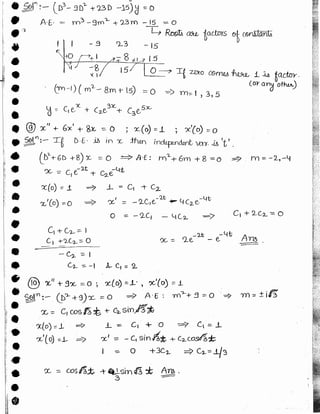 Solⁿ:- (D³ - 9D² + 23D - 15)y = 0
A·E· = m³ - 9m² + 23m - 15 = 0
↳ Roots are factors of constants
1 | 1 -9 23 -15
15 | 0 → If zero comes here 1 is factor.
(or any other)
(m-1)(m² - 8m + 15) = 0 => m = 1, 3, 5
y = C₁eˣ + C₂e³ˣ + C₃e⁵ˣ
⑨ x'' + 6x' + 8x = 0 ; x(0) = 1 ; x'(0) = 0
Solⁿ:- If D·E· is in x then independent var. is 't'.
(D² + 6D + 8)x = 0 => A·E: m² + 6m + 8 = 0 => m = -2, -4
x = C₁e⁻²ᵗ + C₂e⁻⁴ᵗ
x(0) = 1 => 1 = C₁ + C₂
x'(0) = 0 => x' = -2C₁e⁻²ᵗ - 4C₂e⁻⁴ᵗ
0 = -2C₁ - 4C₂ => C₁ + 2C₂ = 0
C₁ + C₂ = 1
C₁ + 2C₂ = 0 x = 2e⁻²ᵗ - e⁻⁴ᵗ Ans.
- C₂ = 1
C₂ = -1 & C₁ = 2
⑩ x'' + 9x = 0 ; x(0) = 1 , x'(0) = 1
Solⁿ:- (D² + 9)x = 0 => A·E: m² + 9 = 0 => m = ± i√3
x = C₁ cos√3t + C₂ sin√3t
x(0) = 1 => 1 = C₁ + 0 => C₁ = 1
x'(0) = 1 => x' = -C₁ sin√3t + C₂ cos√3t
1 = 0 + 3C₂ => C₂ = 1/3
x = cos√3t + 1/3 sin√3t Ans.